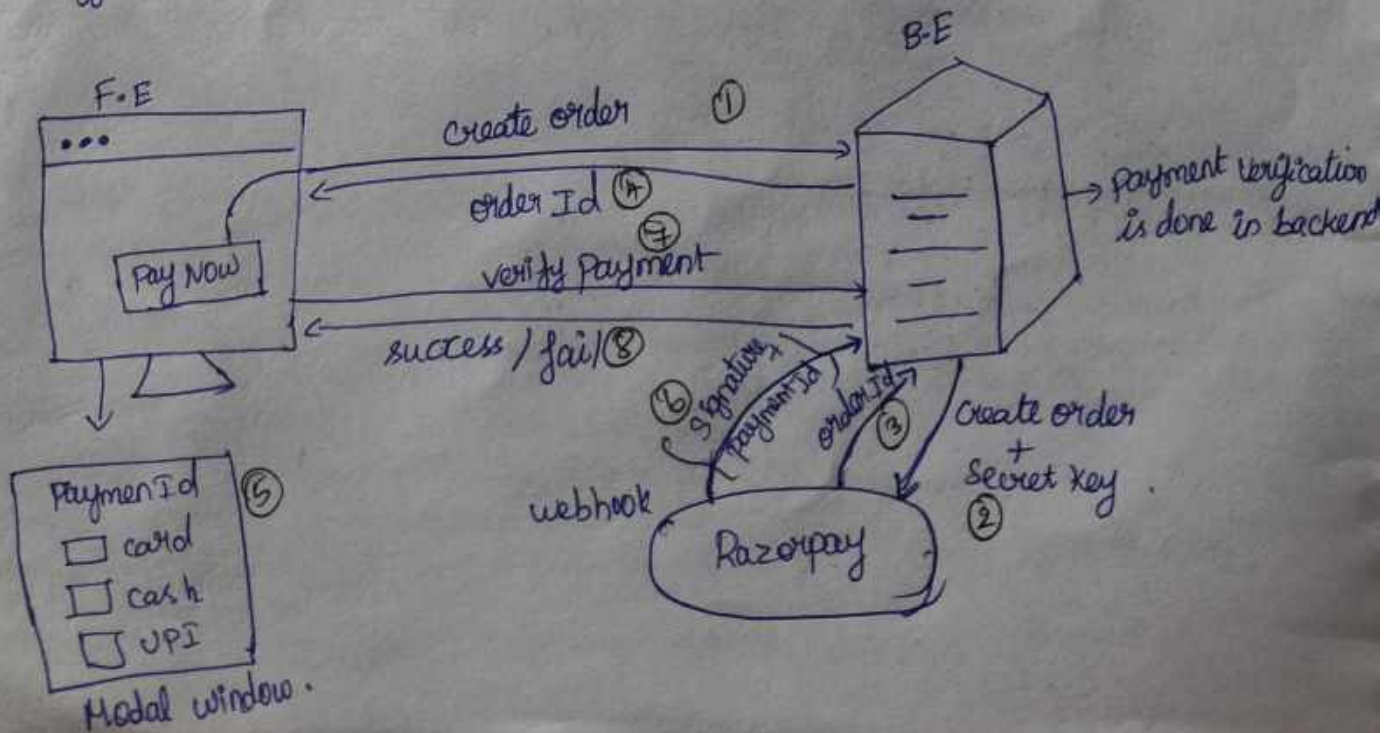 B-E
F.E
create order ①
order Id ④
⑦
verify payment
success / fail ⑧
Pay NOW
→ payment verification
is done in backend
⑥ signature +
paymentId
orderId
③
create order
+
secret key .
②
webhook
Razorpay
PaymenId ⑤
card
cash
UPI
Modal window.